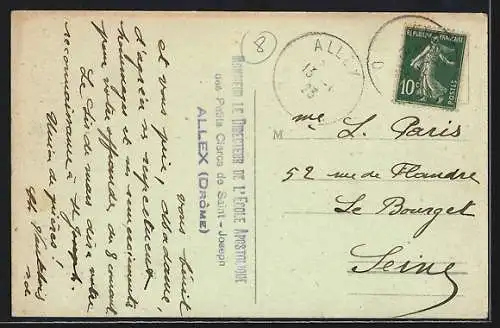 8
ALLEX
13
23
RÉPUBLIQUE FRANÇAISE
POSTES
10c
MONSIEUR LE DIRECTEUR DE L'ÉCOLE APOSTOLIQUE
des Petits Clercs de Saint-Joseph
ALLEX (DRÔME)
M
me L. Paris
52 rue de Flandre
Le Bourget
Seine
vous bénit
et vous prie, Madame,
d'agréer ses respectueux
hommages et ses remerciements
pour votre offrande du 8 courant.
Le dire votre
reconnaissance à St Joseph.
Union de prières!